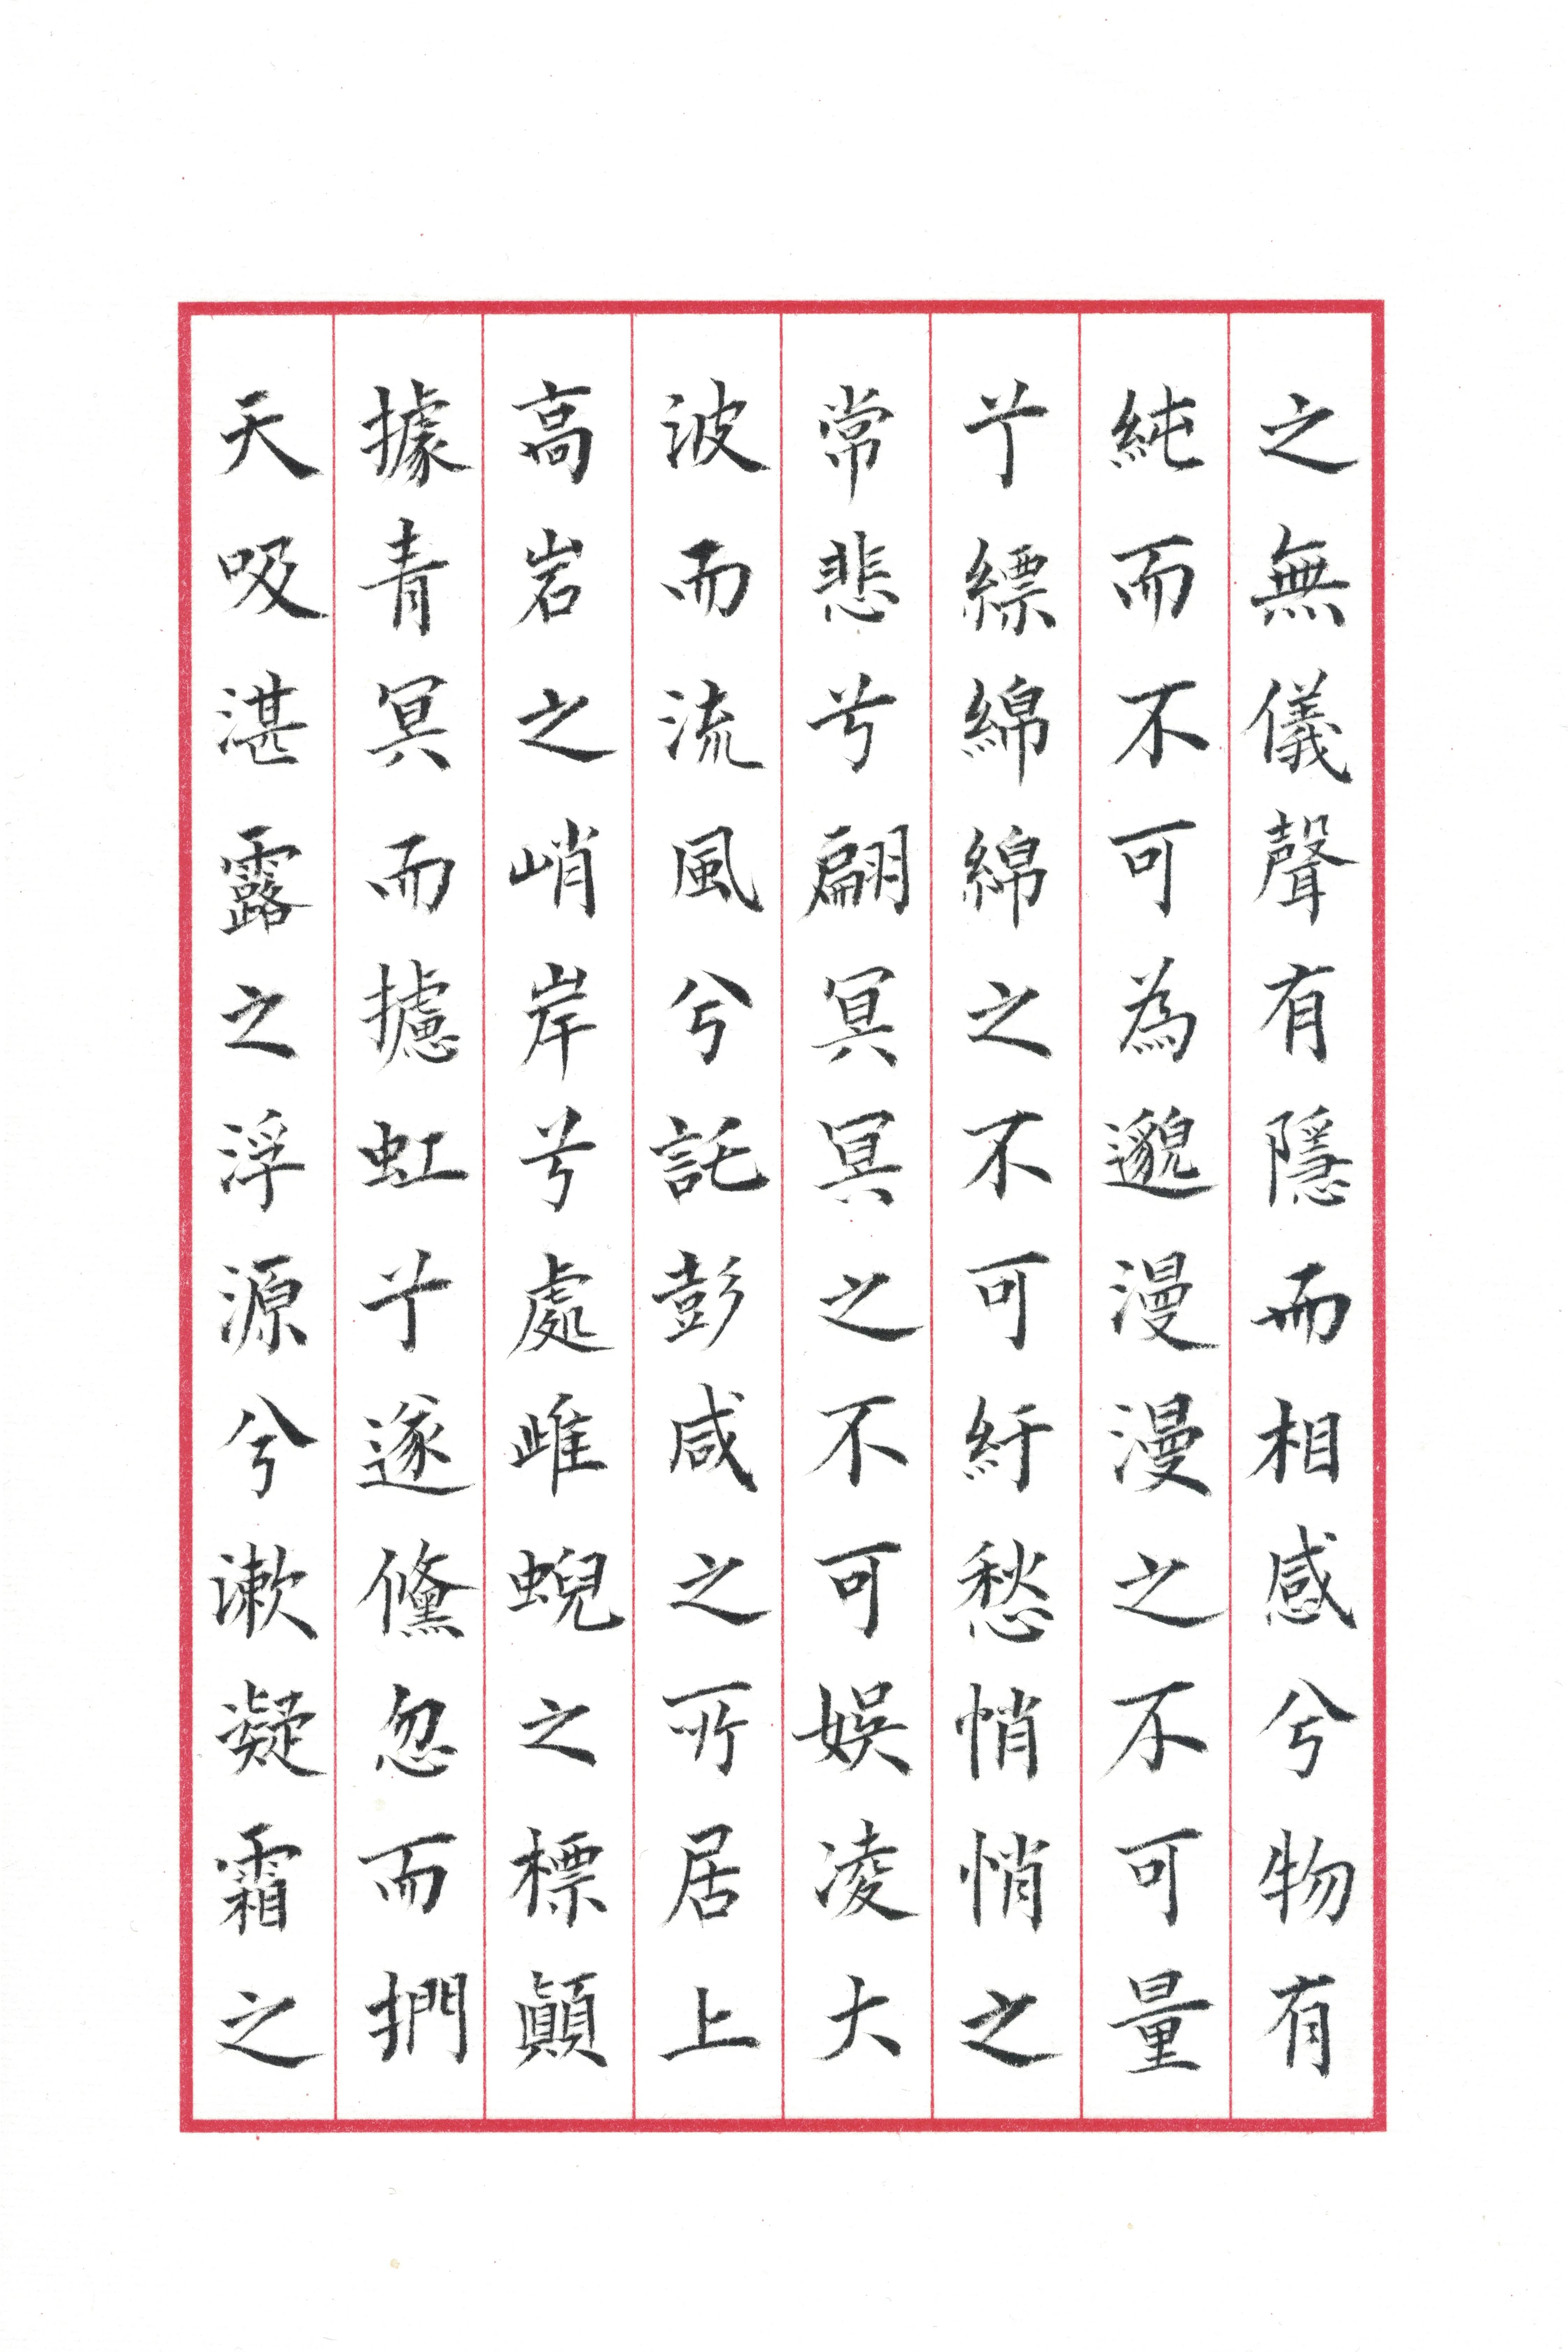 之無儀聲有隱而相感兮物有
純而不可為邈漫漫之不可量
兮縹綿綿之不可紆愁悄悄之
常悲兮翩冥冥之不可娛凌大
波而流風兮託彭咸之所居上
高岩之峭岸兮處雌蜺之標顛
據青冥而攄虹兮遂儵忽而捫
天吸湛露之浮源兮漱凝霜之